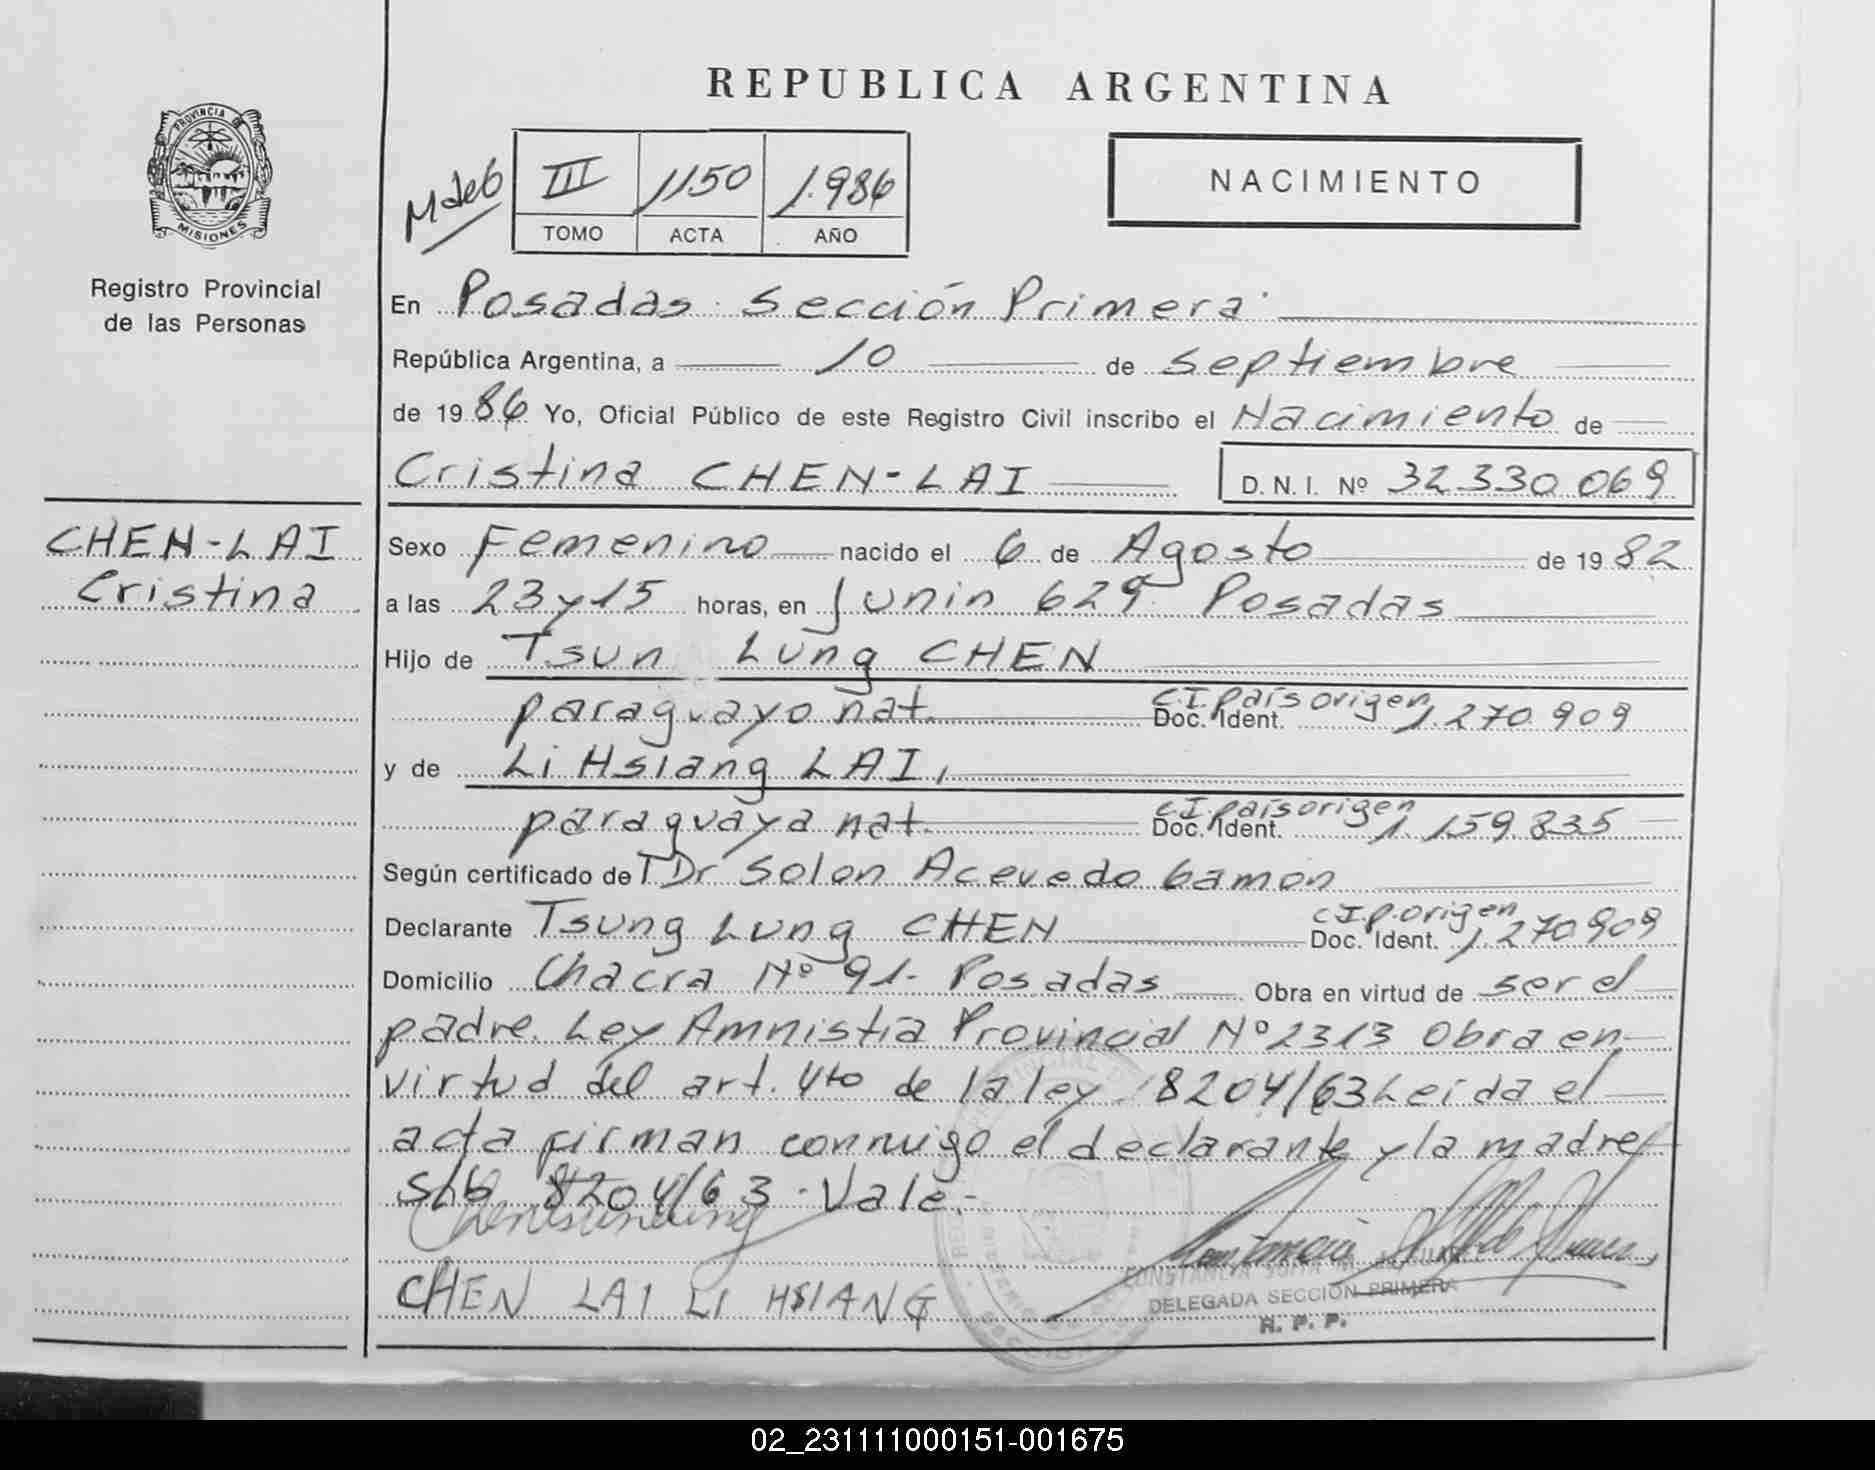 REPUBLICA ARGENTINA
PROVINCIA DE
MISIONES
Registro Provincial
de las Personas
M de 6
III 1150 1.986
TOMO ACTA AÑO
NACIMIENTO
En Posadas Sección Primera
República Argentina, a 10 de septiembre
de 1986 Yo, Oficial Público de este Registro Civil inscribo el Nacimiento de
Cristina CHEN-LAI D. N. I. Nº 32.330.069
CHEN-LAI
Cristina
Sexo Femenino nacido el 6 de Agosto de 1982
a las 23 y 15 horas, en Junin 629 Posadas
Hijo de Tsun Lung CHEN
paraguayo nat. C.I. país origen Doc. Ident. 1.270.909
y de Li Hsiang LAI,
paraguaya nat. C.I. país origen Doc. Ident. 1.159.835
Según certificado de Dr Solon Acevedo Gamon
Declarante Tsung Lung CHEN C.I.p.origen Doc. Ident. 1.270.909
Domicilio Chacra Nº 91- Posadas Obra en virtud de ser el
padre. Ley Amnistia Provincial Nº 2313 Obra en
virtud del art. 4to de la ley 18204/63 Leida el
acta firman conmigo el declarante y la madre
s/b 8204/63. Vale.-
CHEN LAI LI HSIANG
DELEGADA SECCIÓN PRIMERA
R. P. P.
02_231111000151-001675